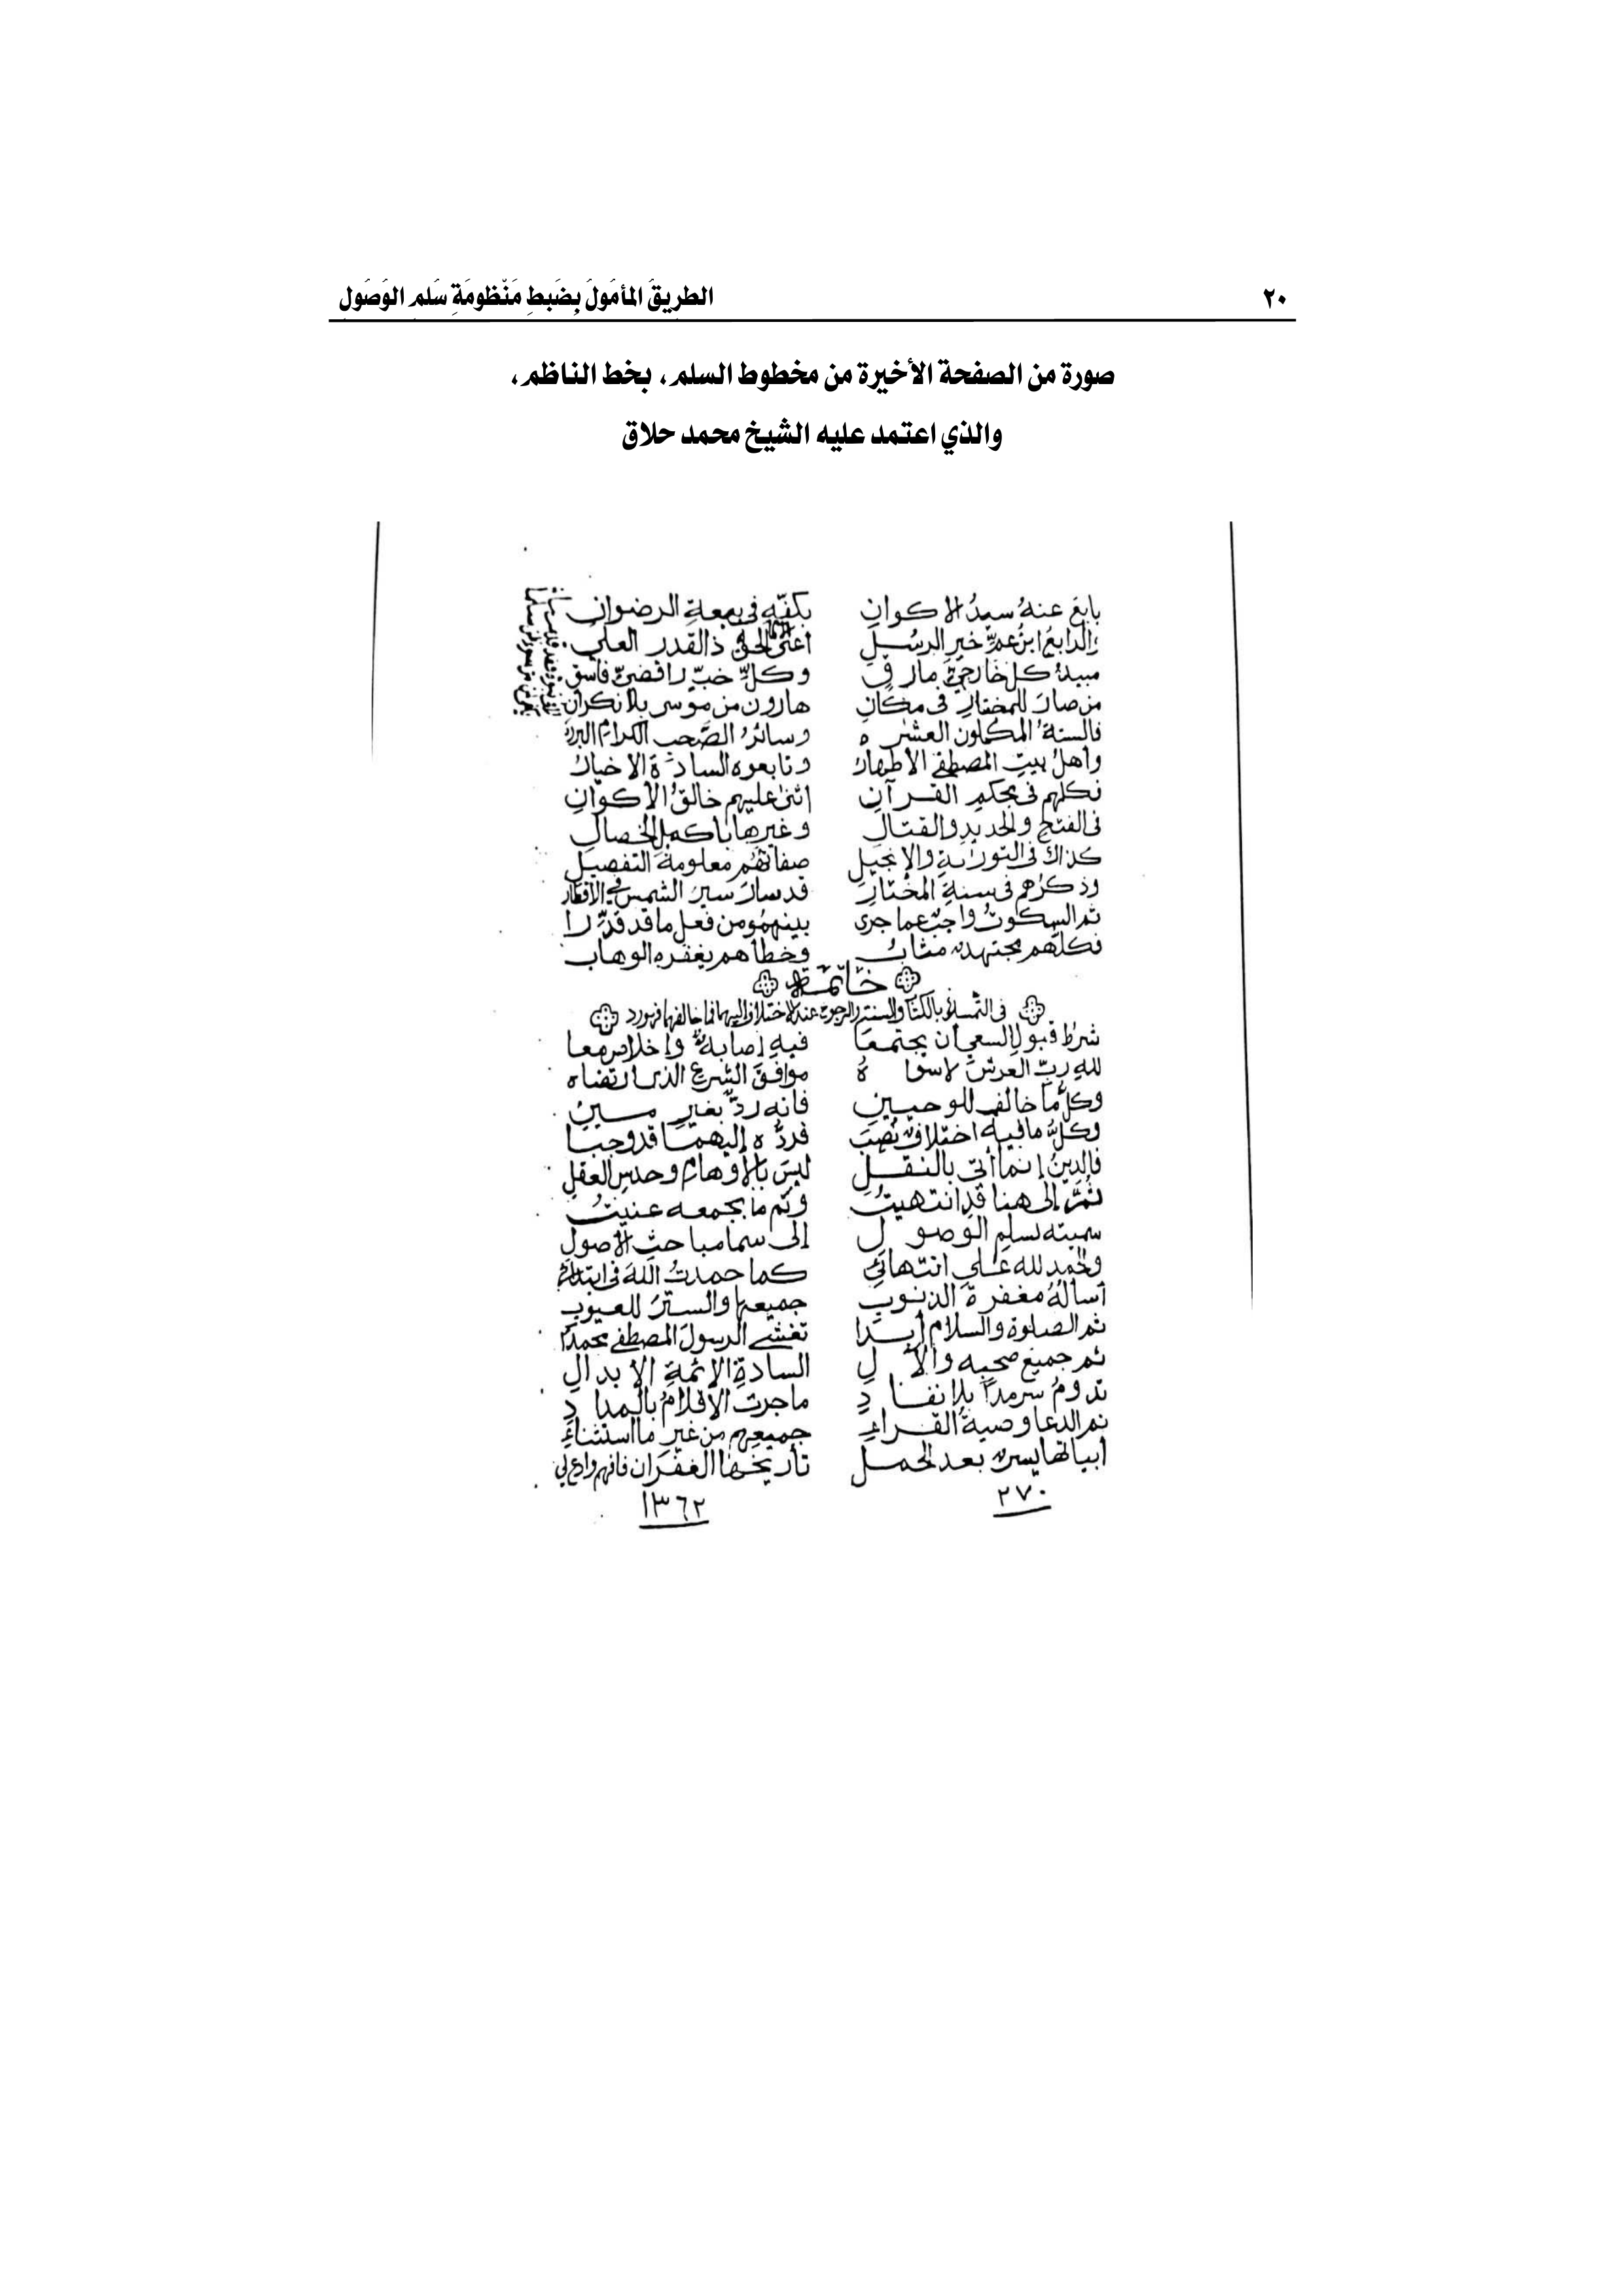 ٢٠ الطريقُ المأمُولُ بِضَبطِ مَنْظومَةِ سُلمِ الوُصُولِ
صورة من الصفحة الأخيرة من مخطوط السلم، بخط الناظم،
والذي اعتمد عليه الشيخ محمد حلاق
بايع عنه سيدُ الاكوانِ بكفّه في بيعة الرضوان
والرابع ابنُ عمِّ خيرِ الرسلِ اعنى الامام الحق ذا القدر العلي
مبيدُ كل خارجيّ مارقِ وكلِّ خبٍّ رافضيّ فاسق
من صار للمختار في مكانِ هارون من موسى بلا نكران
فالستة المكملون العشره وسائرُ الصَّحب الكرام البررة
واهلُ بيتِ المصطفى الاطهارُ وتابعوه السادةُ الاخيارُ
فكلهم في محكم القرآنِ اثنى عليهم خالقُ الأكوانِ
في الفتح والحديدِ والقتالِ وغيرها باكمل الخصالِ
كذاك في التوراةِ والإنجيلِ صفاتُهُم معلومة التفصيلِ
وذكرُهم في سنةِ المختارِ قد سارَ سيرَ الشمسِ في الاقطارِ
ثم السكوتُ واجبٌ عما جرى بينهمُو من فعل ما قد قدّرا
فكلُّهم مجتهد مثاب وخطأهم يغفره الوهاب
خاتمة
في التمسك بالكتاب والسنة والرجوع عند الاختلاف اليهما فما خالفهما فهو رد
شرطُ قبولِ السعيِ أن يجتمعا فيهِ إصابةٌ وإخلاص معا
للهِ ربِّ العرشِ لا سواهُ موافقَ الشرعِ الذي ارتضاه
وكلُّ ما خالف للوحيينِ فانه ردٌّ بغير مين
وكلُّ ما فيه اختلافٌ نُصبَا فردُّه إليهمَا قد وجبا
فالدينُ إنما أتى بالنقلِ ليسَ بالأوهام وحدسِ العقلِ
ثُمَّ إلى هنا قد انتهيتُ وتم ما بجمعه عنيتُ
سميته بسلم الوصول إلى سما مباحثِ الأصول
والحمد لله على انتهائي كما حمدتُ اللهَ في ابتدائي
أسألُه مغفرةَ الذنوبِ جميعها والسترَ للعيوب
ثم الصلوة والسلام أبدا تغشى الرسولَ المصطفى محمدا
ثم جميعَ صحبِه والآلِ السادةِ الائمةِ الابدالِ
تدومُ سرمداً بلا نفادِ ما جرت الأقلامُ بالمدادِ
ثم الدعا وصيةُ القراءِ جميعِهم من غيرِ ما استثناءِ
أبياتها يسر بعد الجمل تأريخها الغفران فافهم وادع لي
٢٧٠ ١٣٦٢